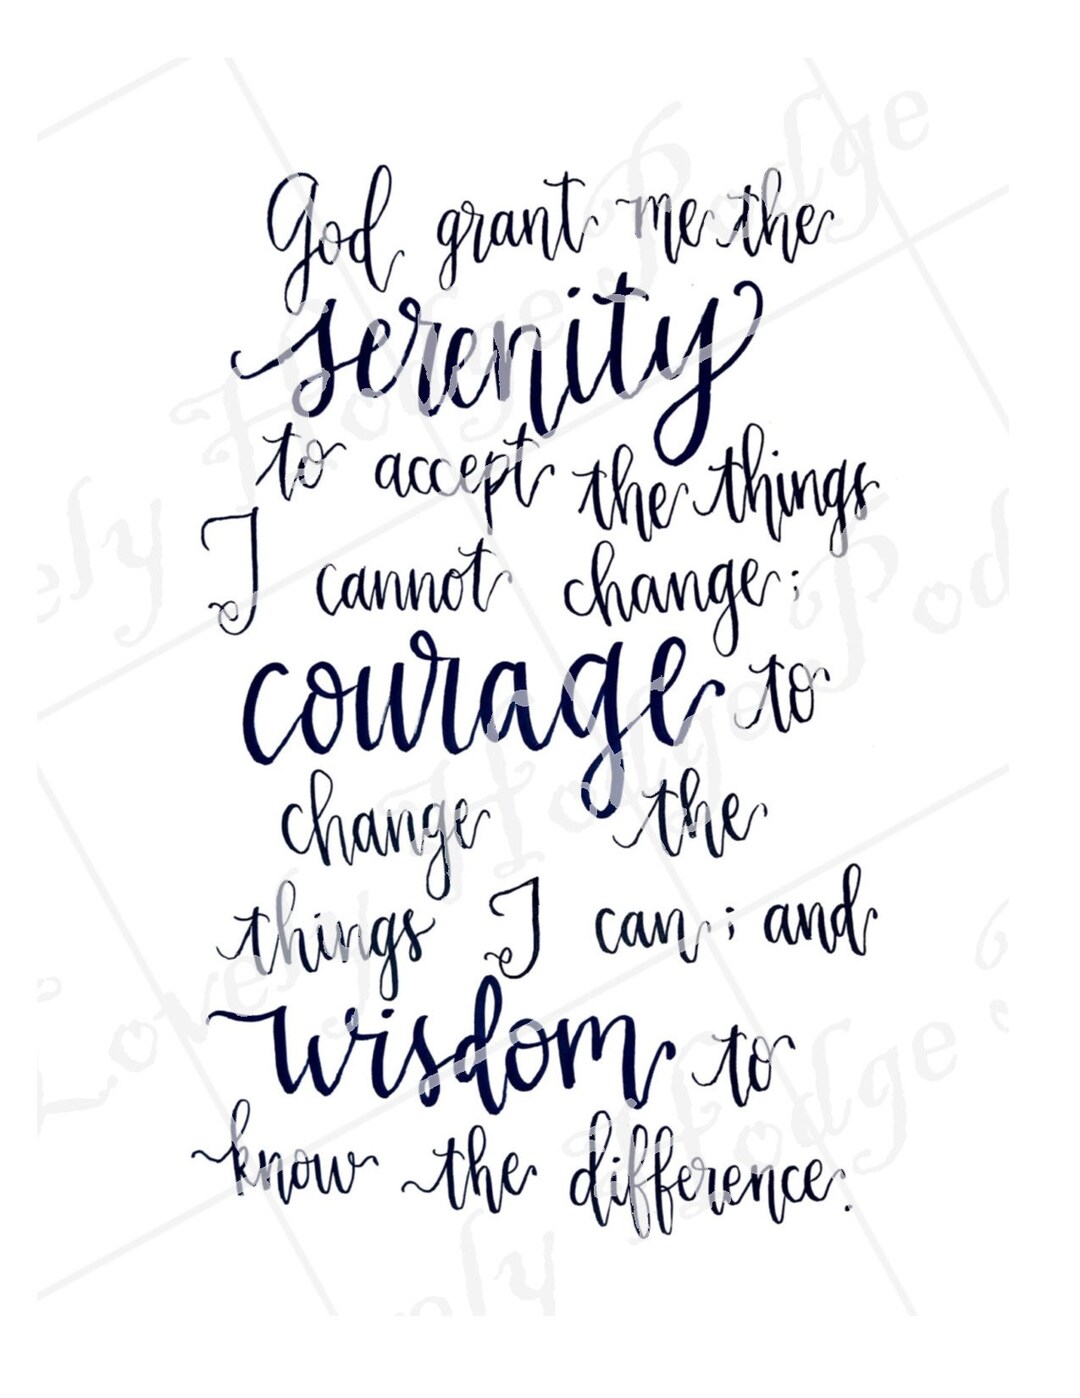 God grant me the
serenity
to accept the things
I cannot change;
courage to
change the
things I can; and
wisdom to
know the difference.
Lovely Hodge Podge